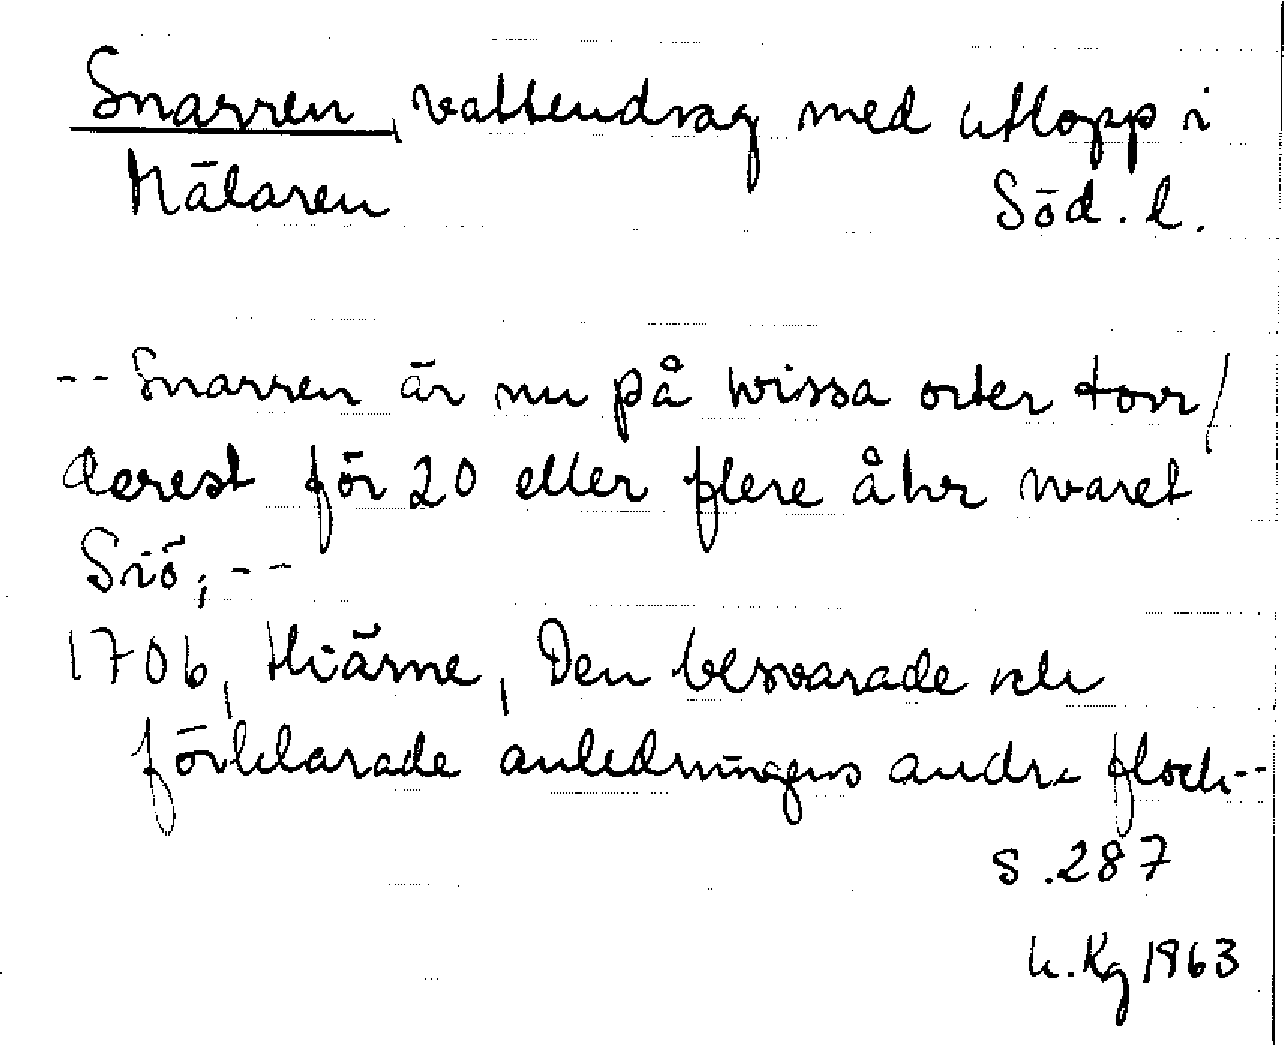 Snarren, vattendrag med utlopp i
Mälaren Söd. l.
-- Snarren är nu på wissa orter torr/
derest för 20 eller flere åhr waret
Siö; --
1706, Hiärne, Den beswarade och
förklarade anledningens andra flock--
s. 287
h. Kg 1963